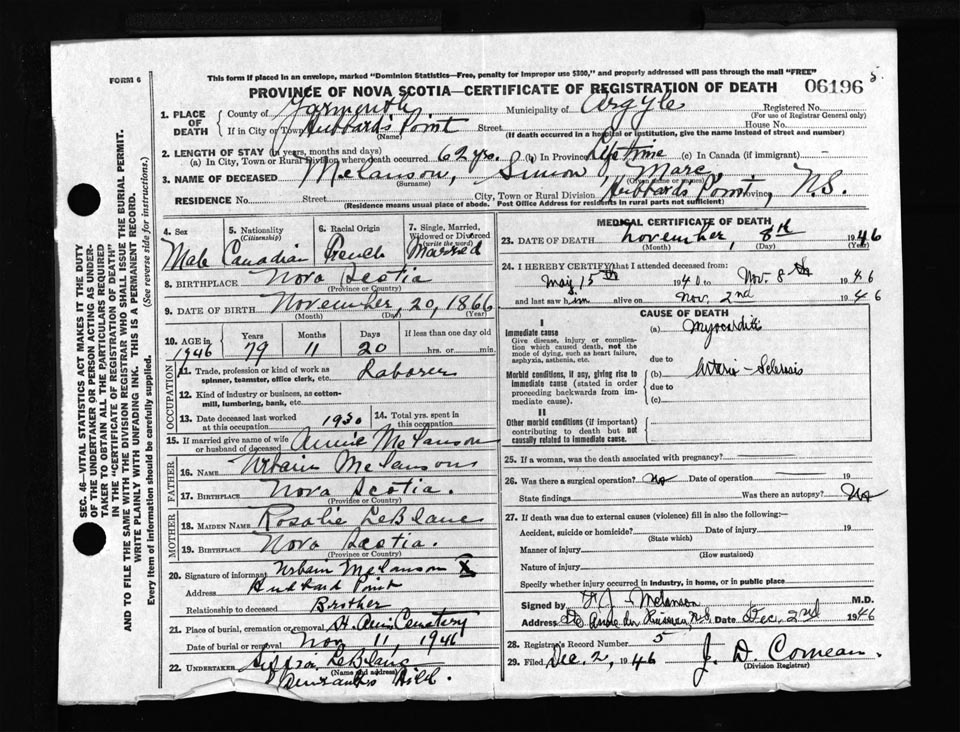 FORM 6
This form if placed in an envelope, marked "Dominion Statistics—Free, penalty for improper use $300," and properly addressed will pass through the mail "FREE"
PROVINCE OF NOVA SCOTIA—CERTIFICATE OF REGISTRATION OF DEATH 06196 5
SEC. 46—VITAL STATISTICS ACT MAKES IT THE DUTY
OF THE UNDERTAKER OR PERSON ACTING AS UNDER-
TAKER TO OBTAIN ALL THE PARTICULARS REQUIRED
IN THE "CERTIFICATE OF REGISTRATION OF DEATH"
AND TO FILE THE SAME WITH THE DIVISION REGISTRAR WHO SHALL ISSUE THE BURIAL PERMIT.
WRITE PLAINLY WITH UNFADING INK. THIS IS A PERMANENT RECORD.
Every item of information should be carefully supplied. (See reverse side for instructions.)
1. PLACE OF DEATH County of Yarmouth Municipality of Argyle Registered No.
(For use of Registrar General only)
If in City or Town Hubbard's Point Street House No.
(Name) (If death occurred in a hospital or institution, give the name instead of street and number)
2. LENGTH OF STAY (in years, months and days)
(a) In City, Town or Rural Division where death occurred 62 yrs. (b) In Province Lifetime (c) In Canada (if immigrant) —
3. NAME OF DECEASED Melanson, Simon Marc
(Surname) (Given name or names)
RESIDENCE No. Street City, Town or Rural Division Hubbards Point, Province N.S.
(Residence means usual place of abode. Post Office Address for residents in rural parts not sufficient)
4. Sex 5. Nationality (Citizenship) 6. Racial Origin 7. Single, Married, Widowed or Divorced (write the word)
Male Canadian French Married
8. BIRTHPLACE Nova Scotia
(Province or Country)
9. DATE OF BIRTH November, 20, 1866
(Month) (Day) (Year)
10. AGE in Years Months Days If less than one day old
1946 79 11 20 hrs. or min.
OCCUPATION
11. Trade, profession or kind of work as spinner, teamster, office clerk, etc. Laborer
12. Kind of industry or business, as cotton-mill, lumbering, bank, etc.
13. Date deceased last worked at this occupation 1930 14. Total yrs. spent in this occupation
15. If married give name of wife or husband of deceased Annie Melanson
FATHER
16. NAME Urbain Melanson
17. BIRTHPLACE Nova Scotia.
(Province or Country)
MOTHER
18. MAIDEN NAME Rosalie LeBlanc
19. BIRTHPLACE Nova Scotia.
(Province or Country)
20. Signature of informant Urbain Melanson X
Address Hubbard Point
Relationship to deceased Brother
21. Place of burial, cremation or removal St. Ann Cemetery
Date of burial or removal Nov 11 1946
22. UNDERTAKER LeBlanc
(Name and address)
Hill.
MEDICAL CERTIFICATE OF DEATH
23. DATE OF DEATH November, 8th 1946
(Month) (Day) (Year)
24. I HEREBY CERTIFY that I attended deceased from:
May 15th 1940 to Nov. 8th 1946
and last saw him alive on Nov. 2nd 1946
CAUSE OF DEATH
I
Immediate cause (a) Myocarditis
Give disease, injury or complication which caused death, not the mode of dying, such as heart failure, asphyxia, asthenia, etc.
due to
Morbid conditions, if any, giving rise to immediate cause (stated in order proceeding backwards from immediate cause). (b) Arterio-Sclerosis
due to
(c)
II
Other morbid conditions (if important) contributing to death but not causally related to immediate cause.
25. If a woman, was the death associated with pregnancy?
26. Was there a surgical operation? No Date of operation 19
State findings Was there an autopsy? No
27. If death was due to external causes (violence) fill in also the following:—
Accident, suicide or homicide? Date of injury 19
(State which)
Manner of injury
(How sustained)
Nature of injury
Specify whether injury occurred in industry, in home, or in public place
Signed by Melanson M.D.
Address Ste Anne du Ruisseau, N.S. Date Dec. 2nd 1946
28. Registrar's Record Number 5
29. Filed Dec. 2, 1946 J. D. Comeau.
(Division Registrar)